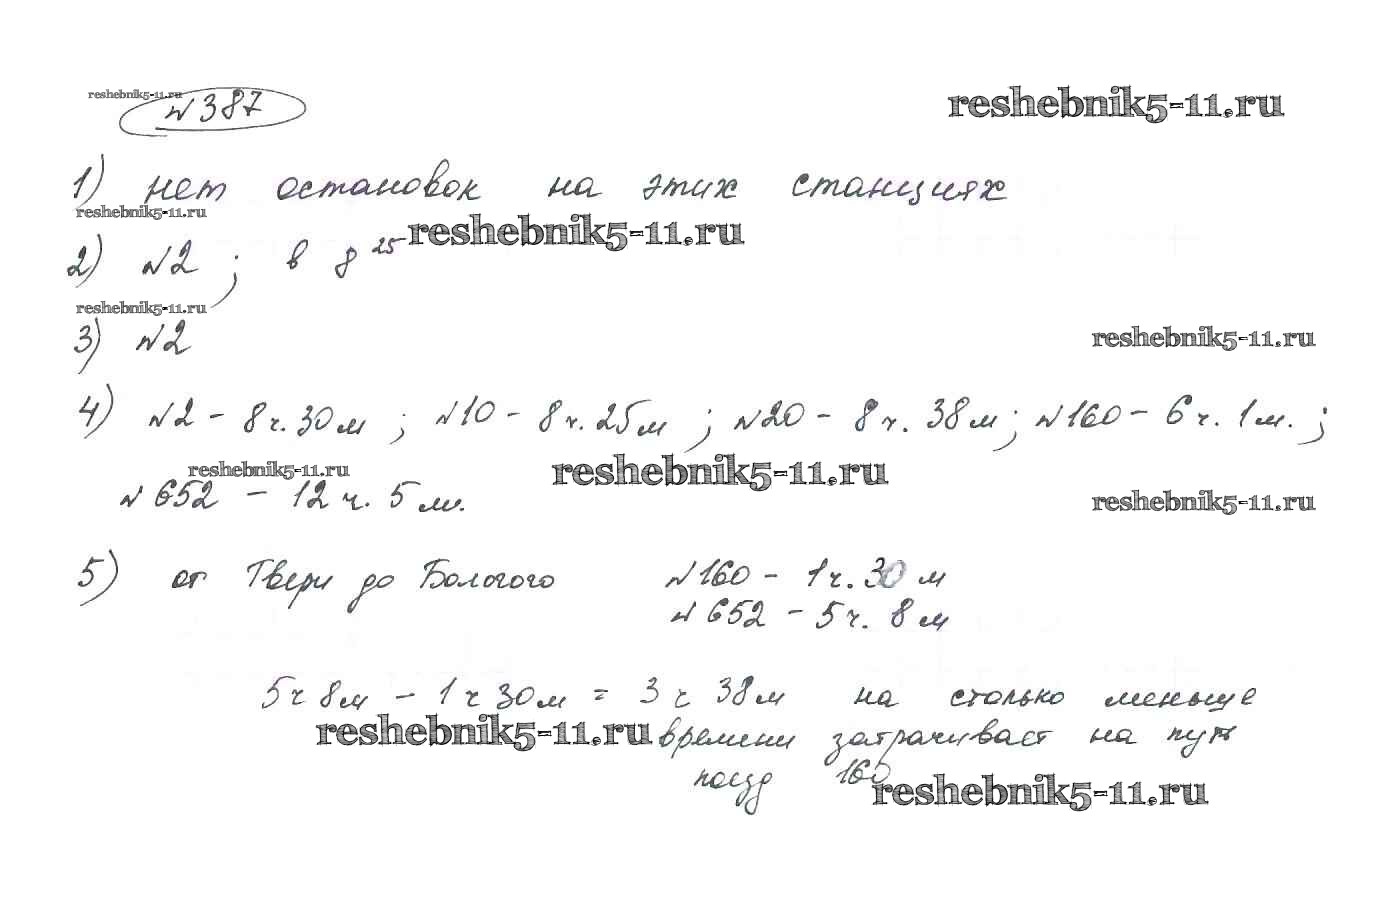 reshebnik5-11.ru
№387
reshebnik5-11.ru
1) нет остановок на этих станциях
reshebnik5-11.ru
reshebnik5-11.ru
2) №2 ; в 8 25
reshebnik5-11.ru
3) №2
reshebnik5-11.ru
4) №2 - 8 ч. 30 м ; №10 - 8 ч. 25 м ; №20 - 8 ч. 38 м ; №160 - 6 ч. 1 м. ;
reshebnik5-11.ru
reshebnik5-11.ru
№652 - 12 ч. 5 м.
reshebnik5-11.ru
5) от Твери до Бологого №160 - 1 ч. 30 м
№652 - 5 ч. 8 м
5 ч 8 м - 1 ч 30 м = 3 ч 38 м на столько меньше
reshebnik5-11.ru
времени затрачивает на путь
поезд 160
reshebnik5-11.ru